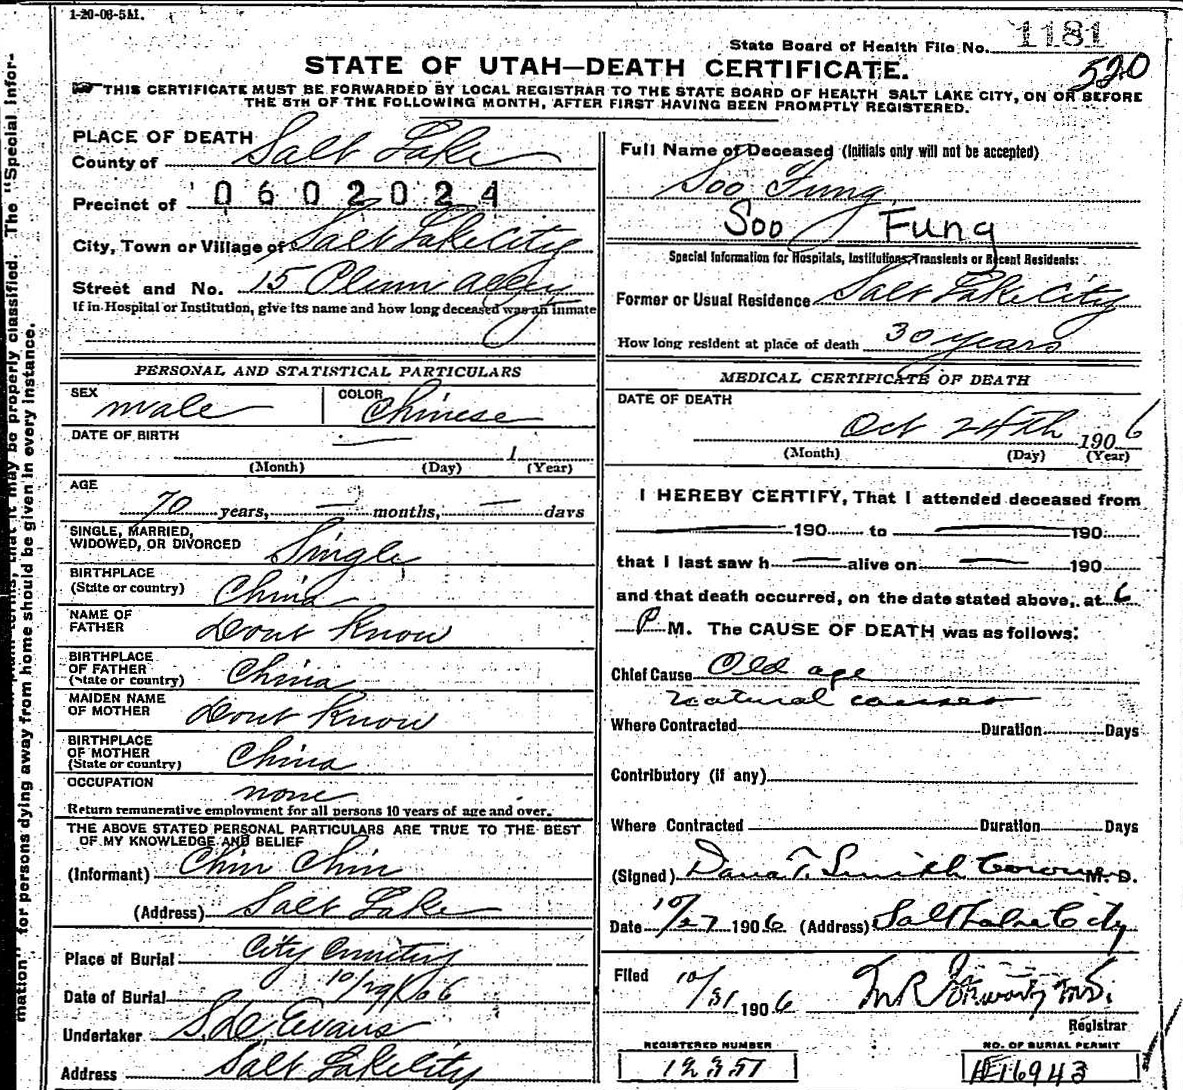 1-20-06-5M.
State Board of Health File No. 1181
520
STATE OF UTAH—DEATH CERTIFICATE.
THIS CERTIFICATE MUST BE FORWARDED BY LOCAL REGISTRAR TO THE STATE BOARD OF HEALTH SALT LAKE CITY, ON OR BEFORE
THE 5TH OF THE FOLLOWING MONTH, AFTER FIRST HAVING BEEN PROMPTLY REGISTERED.
PLACE OF DEATH
County of Salt Lake
Precinct of 0602024
City, Town or Village of Salt Lake City
Street and No. 15 Plum Alley
If in Hospital or Institution, give its name and how long deceased was an inmate
Full Name of Deceased (Initials only will not be accepted)
Soo Fung
Soo Fung
Special Information for Hospitals, Institutions, Transients or Recent Residents:
Former or Usual Residence Salt Lake City
How long resident at place of death 30 years
PERSONAL AND STATISTICAL PARTICULARS
SEX male COLOR Chinese
DATE OF BIRTH — 1
(Month) (Day) (Year)
AGE
70 years, — months, — days
SINGLE, MARRIED,
WIDOWED, OR DIVORCED Single
BIRTHPLACE
(State or country) China
NAME OF
FATHER Dont Know
BIRTHPLACE
OF FATHER
(State or country) China
MAIDEN NAME
OF MOTHER Dont Know
BIRTHPLACE
OF MOTHER
(State or country) China
OCCUPATION none
Return remunerative employment for all persons 10 years of age and over.
THE ABOVE STATED PERSONAL PARTICULARS ARE TRUE TO THE BEST
OF MY KNOWLEDGE AND BELIEF
(Informant) Chin Chin
(Address) Salt Lake
Place of Burial City Cemetery
Date of Burial 10/29/06
Undertaker Evans
Address Salt Lake City
MEDICAL CERTIFICATE OF DEATH
DATE OF DEATH
Oct 24th 1906
(Month) (Day) (Year)
I HEREBY CERTIFY, That I attended deceased from
— 190 to — 190
that I last saw h — alive on — 190
and that death occurred, on the date stated above, at 6
P M. The CAUSE OF DEATH was as follows:
Chief Cause Old age
natural causes
Where Contracted Duration Days
Contributory (if any)
Where Contracted Duration Days
(Signed) Dana T. Smith Coroner M. D.
Date 10/27 1906 (Address) Salt Lake City
Filed 10/31 1906
Registrar
REGISTERED NUMBER
12351
NO. OF BURIAL PERMIT
16943
that it may be properly classified. The "Special Infor-
mation" for persons dying away from home should be given in every instance.